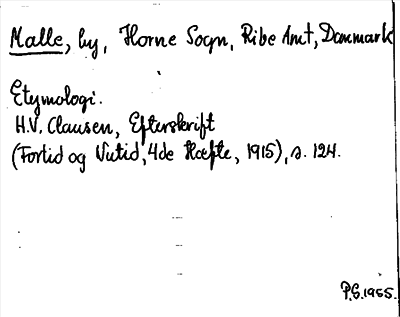 Malle, by, Horne Sogn, Ribe Amt, Danmark
Etymologi.
H.V. Clausen, Efterskrift
(Fortid og Nutid, 4de Hæfte, 1915), s. 124.
P.G. 1955.